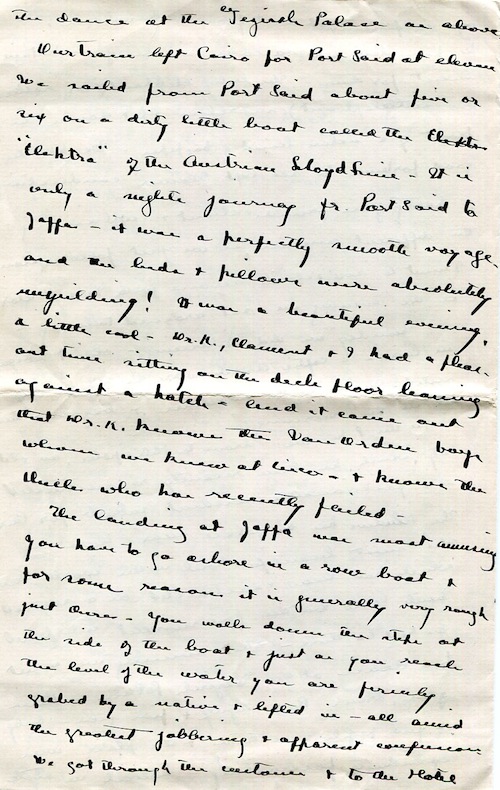 the dance at the Gezireh Palace as above
Our train left Cairo for Port Said at eleven
We sailed from Port Said about five or
six on a dirty little boat called the Elektr
"Elektra" of the Austrian Lloyd Line - It is
only a nights journey fr. Port Said to
Jaffa - it was a perfectly smooth voyage,
and the beds & pillows were absolutely
unyielding! It was a beautiful evening,
a little cool - Dr. K., Clement & I had a pleas-
ant time sitting on the deck floor leaning
against a hatch - and it came out
that Dr. K. knows the Van Orden boys
whom we knew at - & knows the
Uncle who has recently failed -
The landing at Jaffa was most amusing
You have to go ashore in a row boat &
for some reason it is generally very rough
just there - You walk down the steps at
the side of the boat & just as you reach
the level of the water you are firmly
grabed by a native & lifted in - all amid
the greatest jabbering & apparent confusion
We got through the customs & to the Hotel